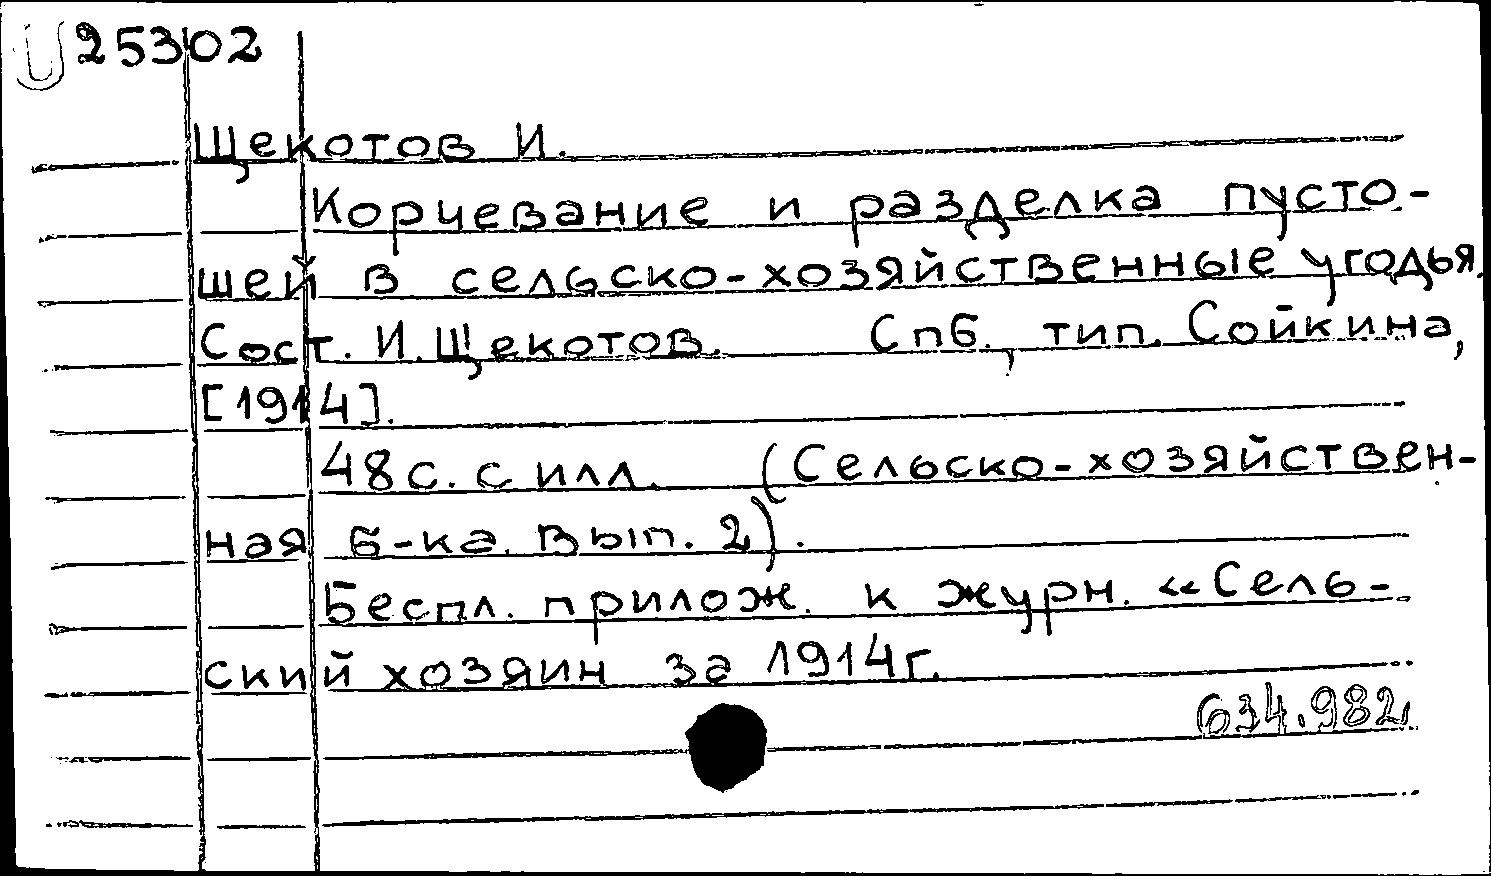 U 25302
Щекотов И.
Корчевание и разделка пусто-
шей в сельско-хозяйственные угодья.
Сост. И. Щекотов. Спб., тип. Сойкина,
[1914].
48 с. с илл. (Сельско-хозяйствен-
ная б-ка. Вып. 2).
Беспл. прилож. к журн. «Сель-
ский хозяин за 1914г.
634.982